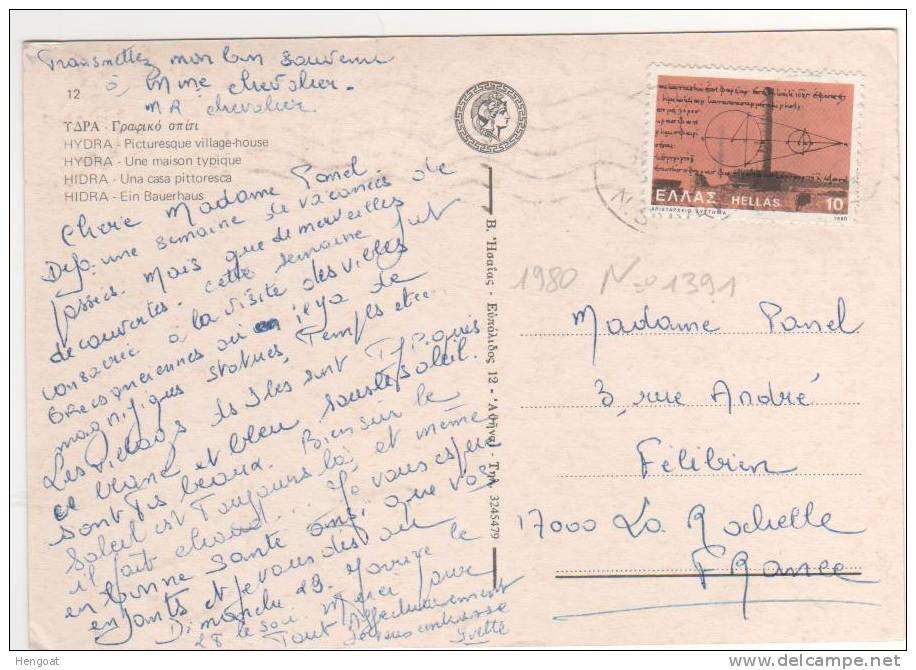 Transmettez mon bon souvenir
à Mme Chevalier.
MR Chevalier.
12
ΥΔΡΑ - Γραφικό σπίτι
HYDRA - Picturesque village-house
HYDRA - Une maison typique
HIDRA - Una casa pittoresca
HIDRA - Ein Bauerhaus
Chère Madame Panel
Déjà une semaine de vacances de
passées. Mais que de merveilles
découvertes. Cette semaine fut
consacrée à la visite des villes
Grecque anciennes où il y a de
magnifiques statues, Temples etc..
Les villages les Iles sont Typiques
ce blanc et bleu sous le soleil.
sont Très beaux. Bien sûr le
soleil est Toujours là et même
il fait chaud... Je vous espère
en bonne santé ainsi que vos
enfants et je vous dis au
Dimanche 29. J'arrive le
28 le soir. Merci pour
Tout Affectueusement
Je vous embrasse
Yvette
Β. Ἡσαΐας - Εὐπόλιδος 12 - Ἀθῆναι - Τηλ. 3245479
ΕΛΛΑΣ HELLAS 10
ΑΡΙΣΤΑΡΧΕΙΟ ΣΥΣΤΗΜΑ 1980
1980 N° 1391
Madame Panel
3, rue André
Félibien
17000 La Rochelle
FRance
Hengoat
www.delcampe.net